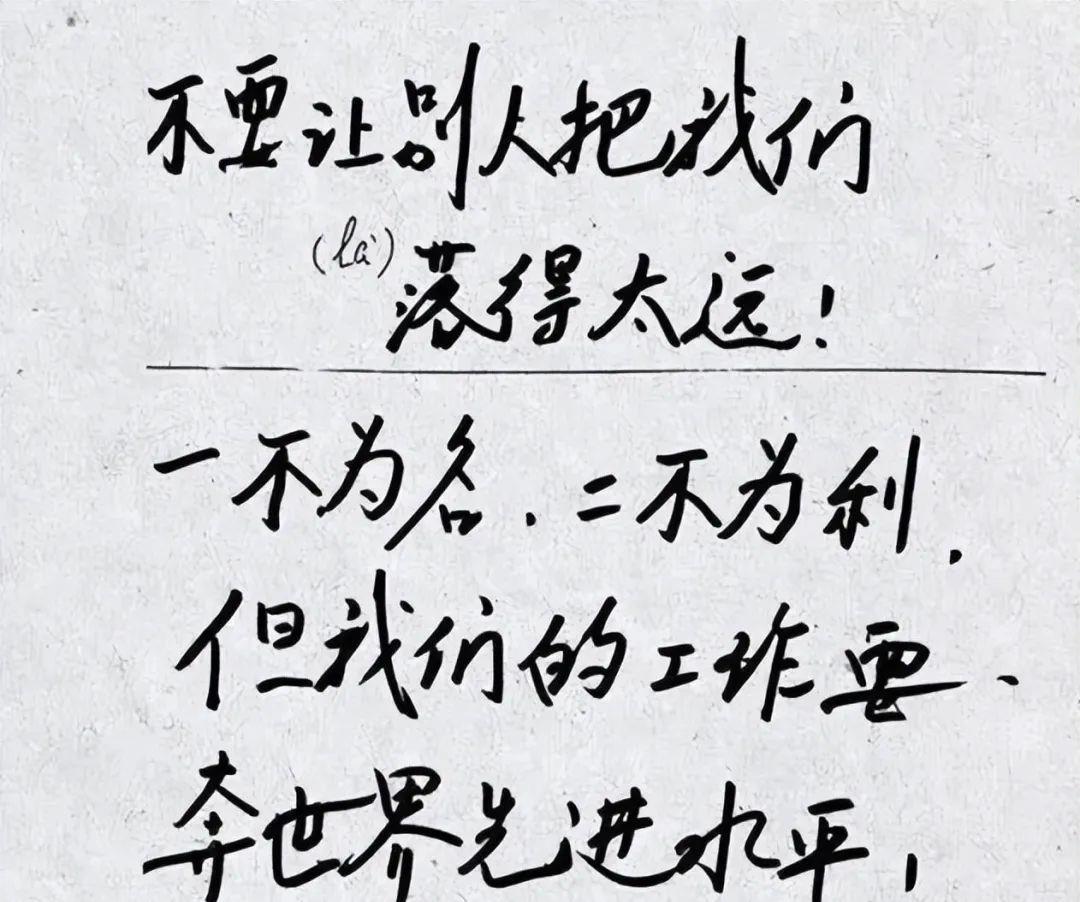 不要让别人把我们
(là)落得太远！
一不为名，二不为利，
但我们的工作要
奔世界先进水平，